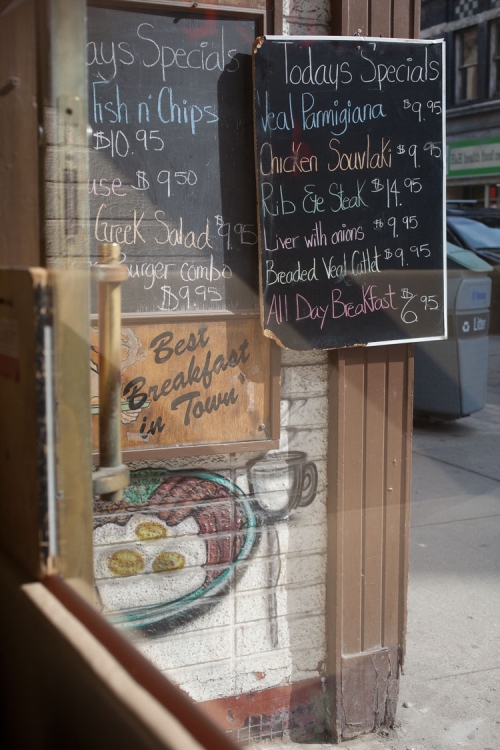 ays Specials
Fish n' Chips
$10.95
use $9.50
Greek Salad 9.95
urger combo
$9.95
Todays Specials
Veal Parmigiana $9.95
Chicken Souvlaki $9.95
Rib Eye Steak $14.95
Liver with onions $9.95
Breaded Veal Cutlet $9.95
All Day Breakfast $6.95
Best
Breakfast
in Town
Litter